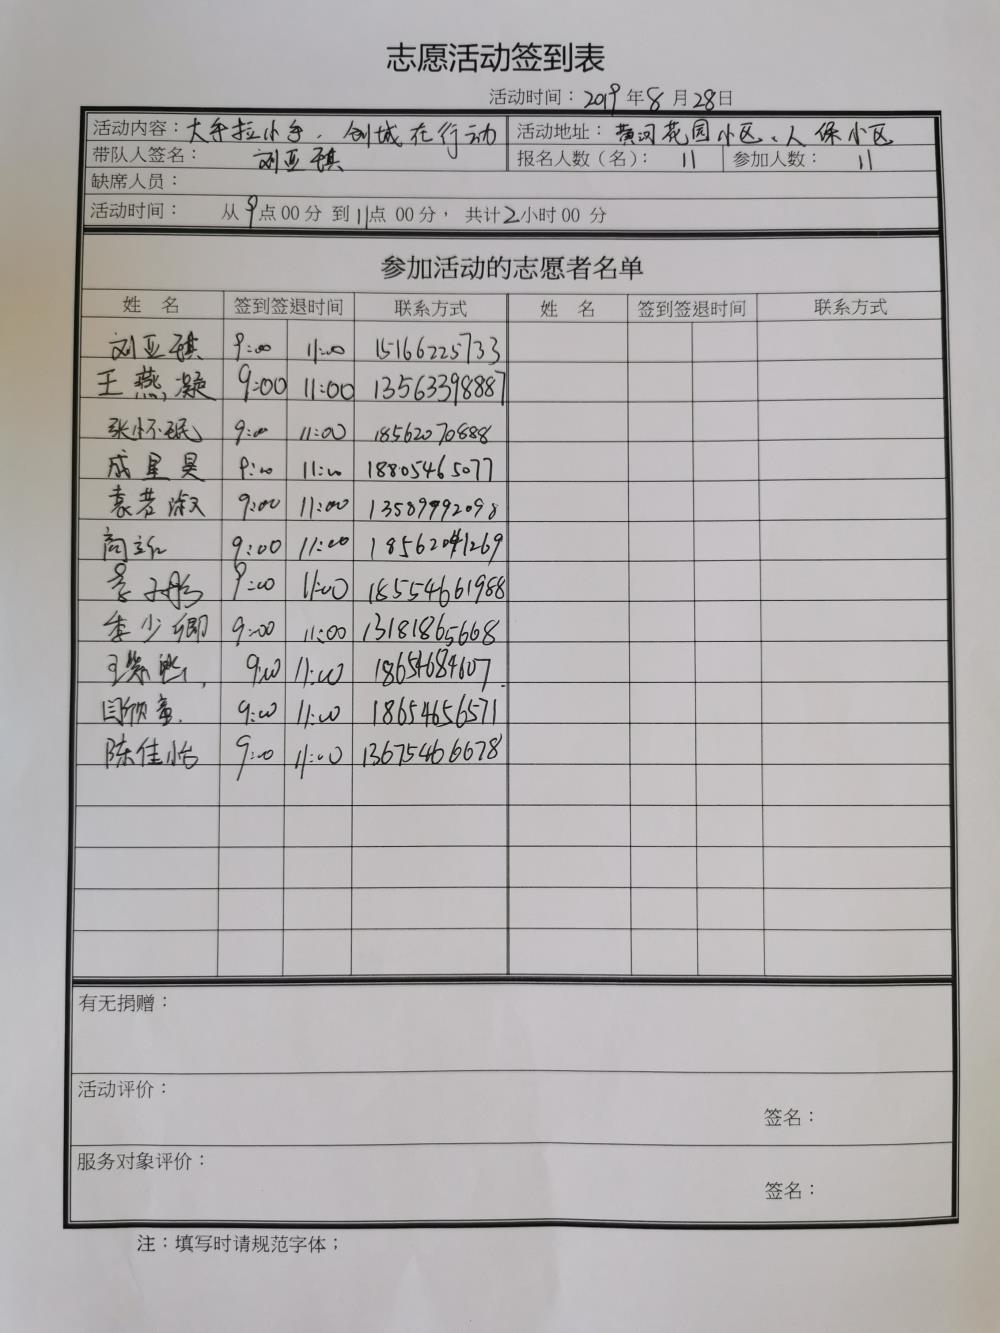 志愿活动签到表
活动时间：2019 年 8 月 28 日
活动内容：大手拉小手，创城在行动 活动地址：黄河花园小区、人保小区
带队人签名：刘亚琪 报名人数（名）： 11 参加人数： 11
缺席人员：
活动时间： 从 9 点 00 分 到 11 点 00 分， 共计 2 小时 00 分
参加活动的志愿者名单
姓 名 签到签退时间 联系方式 姓 名 签到签退时间 联系方式
刘亚琪 9:00 11:00 15166225733
王燕凝 9:00 11:00 13563398887
张怀珉 9:00 11:00 18562070888
成星昊 9:00 11:00 18805465077
袁若淑 9:00 11:00 13589992098
商 9:00 11:00
9:00 11:00 18554661988
李少卿 9:00 11:00 13181865668
王紫 9:00 11:00 18654684607
闫欣童 9:00 11:00 18654656571
陈佳怡 9:00 11:00 13675466678
有无捐赠：
活动评价：
签名：
服务对象评价：
签名：
注：填写时请规范字体；